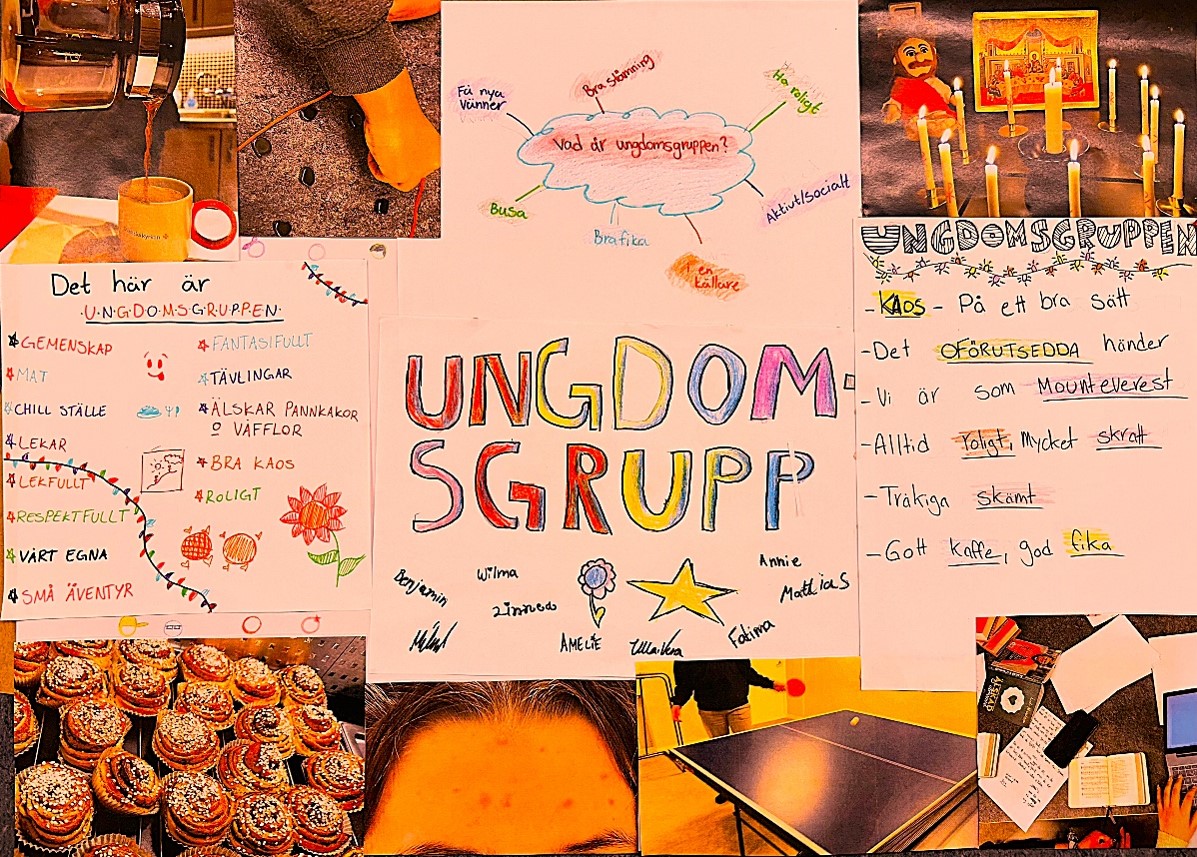 Vad är ungdomsgruppen?
Få nya
vänner
Bra stämning
Ha
roligt
Busa
Bra fika
Aktivt/Socialt
källare
Det här är
U·N·G·D·O·M·S·G·R·U·P·P·E·N
GEMENSKAP
MAT
CHILL STÄLLE
LEKAR
LEKFULLT
RESPEKTFULLT
VÅRT EGNA
SMÅ ÄVENTYR
FANTASIFULLT
TÄVLINGAR
ÄLSKAR PANNKAKOR
O VÅFFLOR
BRA KAOS
ROLIGT
UNGDOM-
SGRUPP
Benjamin
Wilma
Linnea
AMELIE
Annie
Mathias
Fatima
UNGDOMSGRUPPEN
- KAOS - På ett bra sätt
- Det OFÖRUTSEDDA händer
- Vi är som Mounteverest
- Alltid roligt, Mycket skratt
- Tråkiga skämt
- Gott kaffe, god fika